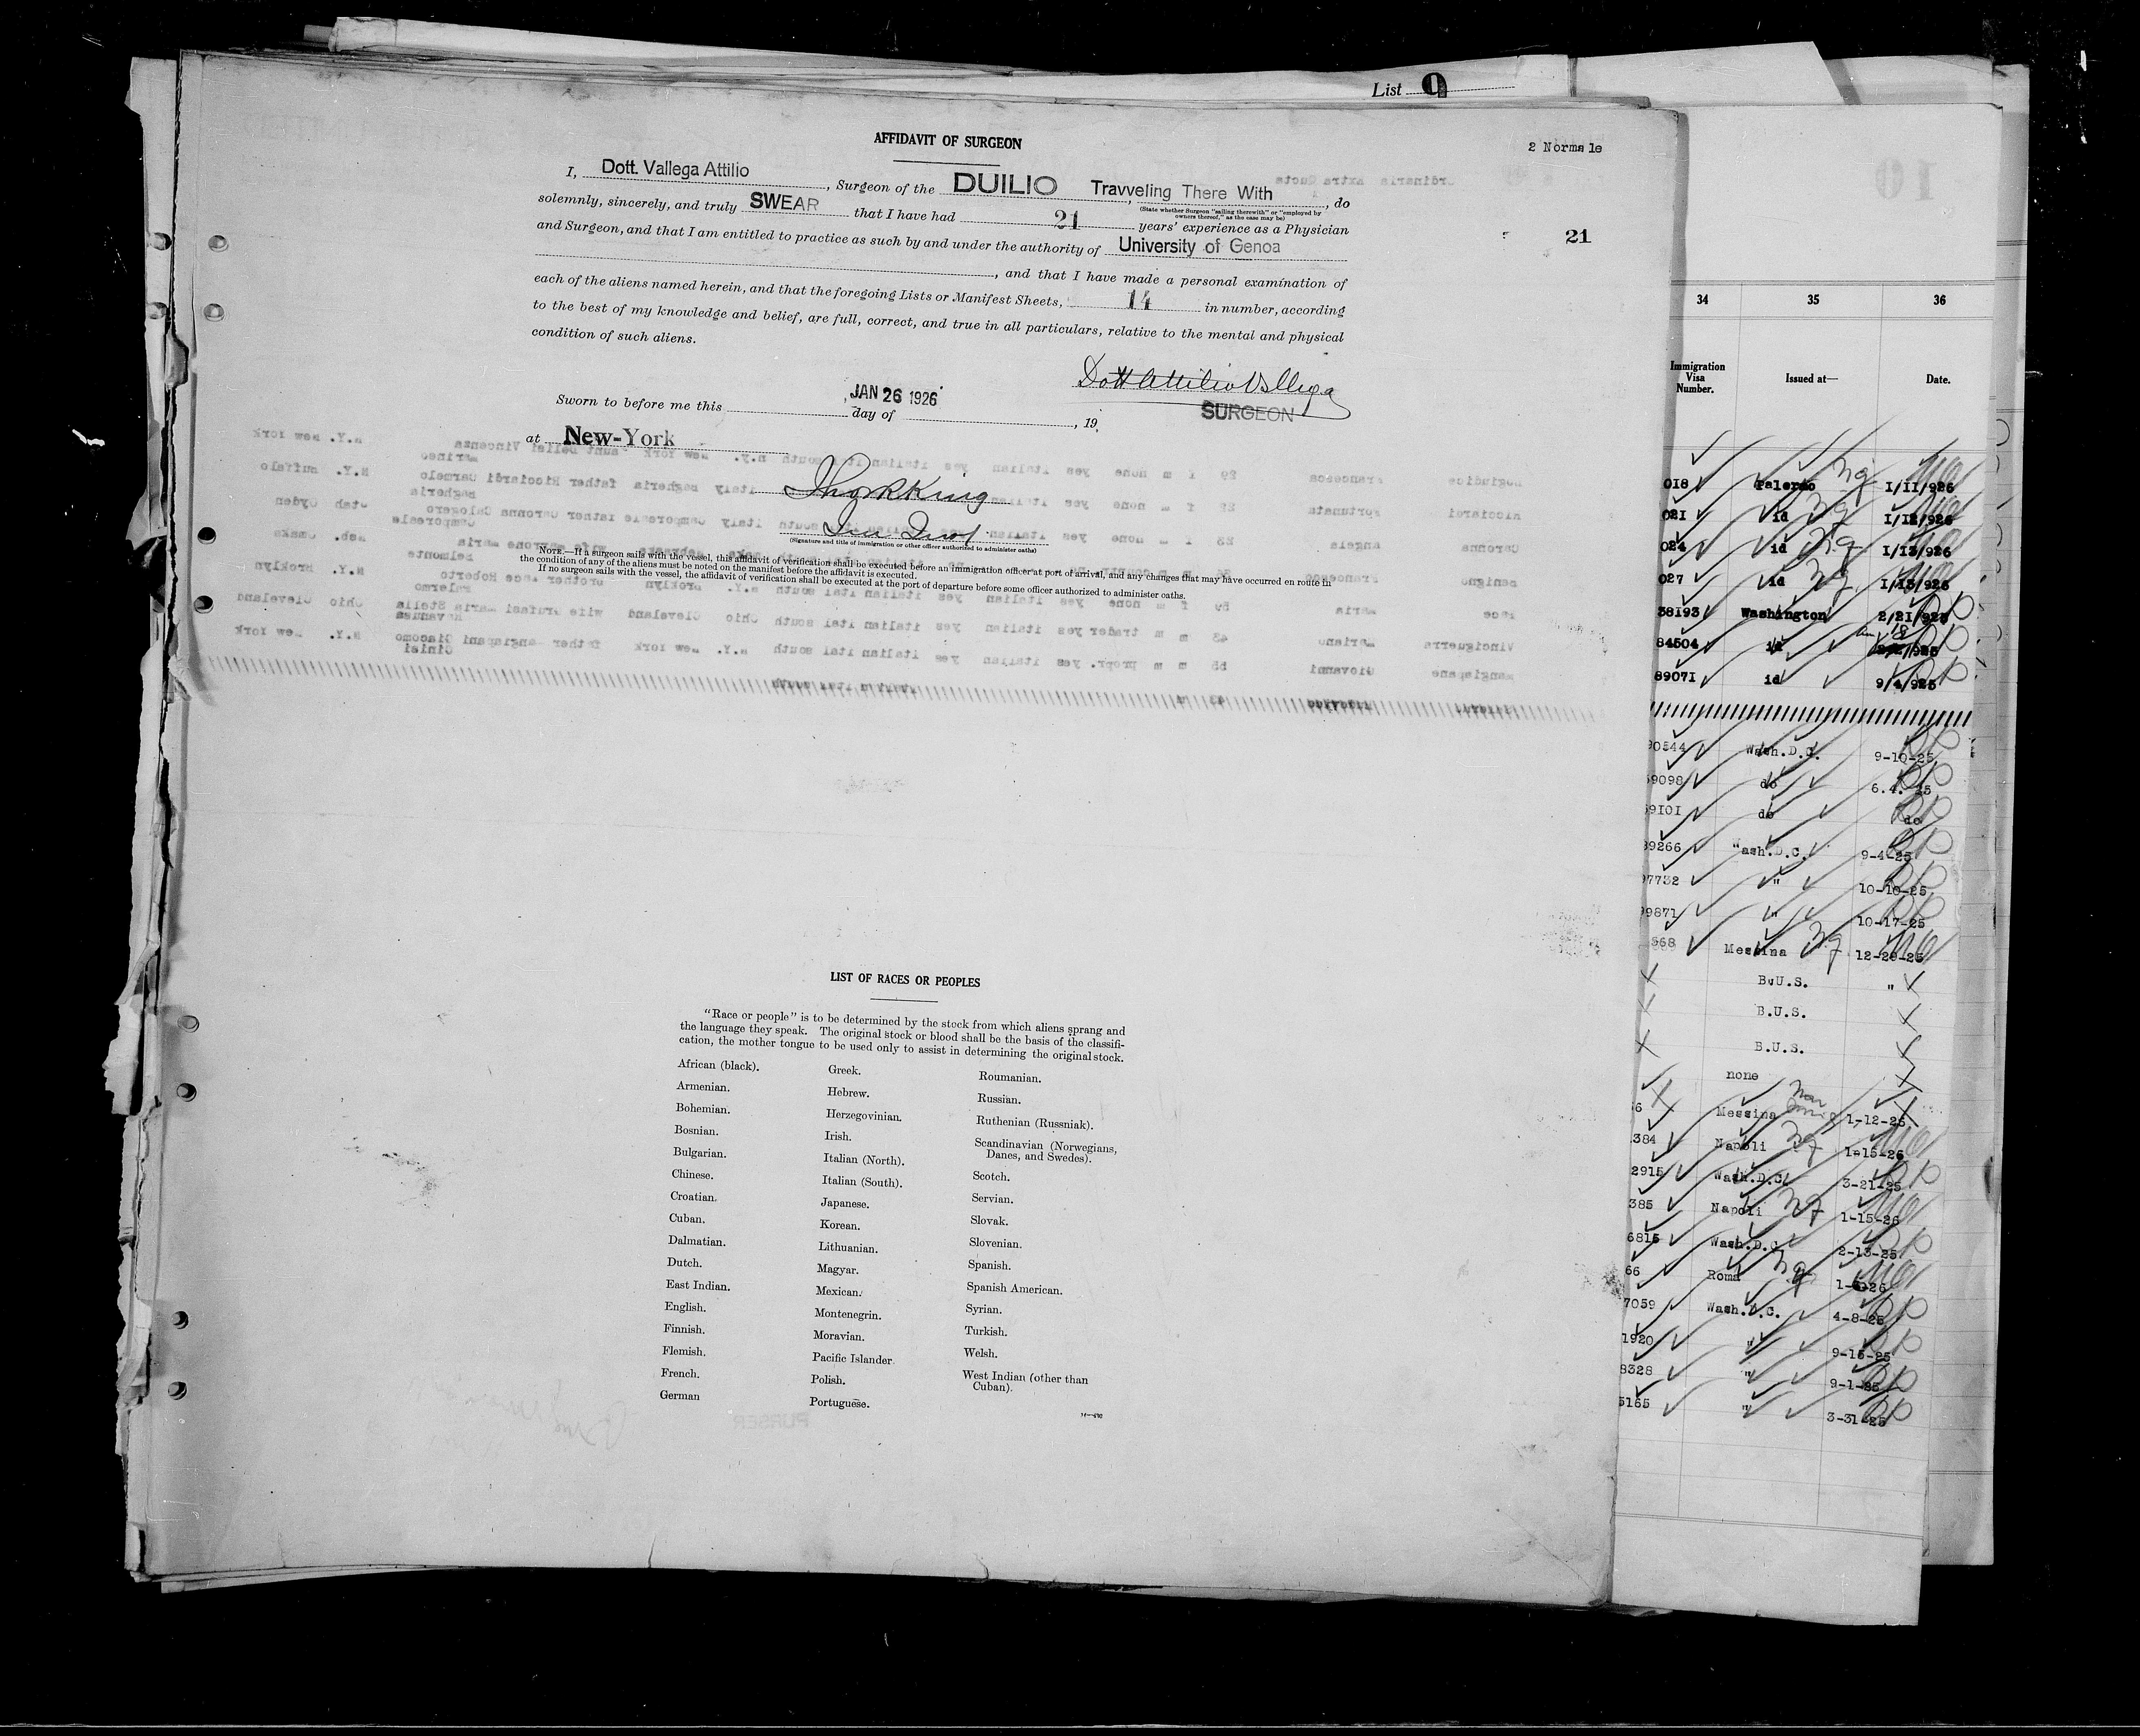 List 9
AFFIDAVIT OF SURGEON
2 Normale
I, Dott. Vallega Attilio, Surgeon of the DUILIO, Travveling There With, do
(State whether Surgeon "sailing therewith" or "employed by owners thereof," as the case may be)
solemnly, sincerely, and truly SWEAR that I have had 21 years' experience as a Physician
21
and Surgeon, and that I am entitled to practice as such by and under the authority of University of Genoa
, and that I have made a personal examination of
each of the aliens named herein, and that the foregoing Lists or Manifest Sheets, 14 in number, according
to the best of my knowledge and belief, are full, correct, and true in all particulars, relative to the mental and physical
condition of such aliens.
Dott Attilio Vallega
SURGEON
Sworn to before me this JAN 26 1926 day of , 19
at New-York
(Signature and title of immigration or other officer authorized to administer oaths)
NOTE.—If a surgeon sails with the vessel, this affidavit of verification shall be executed before an immigration officer at port of arrival, and any changes that may have occurred en route in
the condition of any of the aliens must be noted on the manifest before the affidavit is executed.
If no surgeon sails with the vessel, the affidavit of verification shall be executed at the port of departure before some officer authorized to administer oaths.
LIST OF RACES OR PEOPLES
"Race or people" is to be determined by the stock from which aliens sprang and
the language they speak. The original stock or blood shall be the basis of the classifi-
cation, the mother tongue to be used only to assist in determining the original stock.
African (black).
Armenian.
Bohemian.
Bosnian.
Bulgarian.
Chinese.
Croatian.
Cuban.
Dalmatian.
Dutch.
East Indian.
English.
Finnish.
Flemish.
French.
German
Greek.
Hebrew.
Herzegovinian.
Irish.
Italian (North).
Italian (South).
Japanese.
Korean.
Lithuanian.
Magyar.
Mexican.
Montenegrin.
Moravian.
Pacific Islander.
Polish.
Portuguese.
Roumanian.
Russian.
Ruthenian (Russniak).
Scandinavian (Norwegians,
Danes, and Swedes).
Scotch.
Servian.
Slovak.
Slovenian.
Spanish.
Spanish American.
Syrian.
Turkish.
Welsh.
West Indian (other than
Cuban).
34 35 36
Immigration Visa Number. Issued at— Date.
018 Palermo 1/11/926
021 id 1/12/926
024 id 1/13/926
027 id 1/13/926
38193 Washington 2/21/925
84504 id
89071 id 9/4/925
90544 Wash.D.C. 9-10-25
9098 do 6.4.25
9101 do do
89266 Wash.D.C. 9-4-25
97732 " 10-10-25
99871 " 10-17-25
568 Messina 12-29-25
B.U.S. "
B.U.S.
B.U.S.
none
6 Messina 1-12-26
384 Napoli 1-15-26
2915 Wash.D.C. 3-21-25
385 Napoli 1-15-26
6815 Wash.D.C. 2-13-25
66 Roma
7059 Wash.D.C. 4-8-25
1920 " 9-15-25
8328 " 9-1-25
5165 " 3-31-25